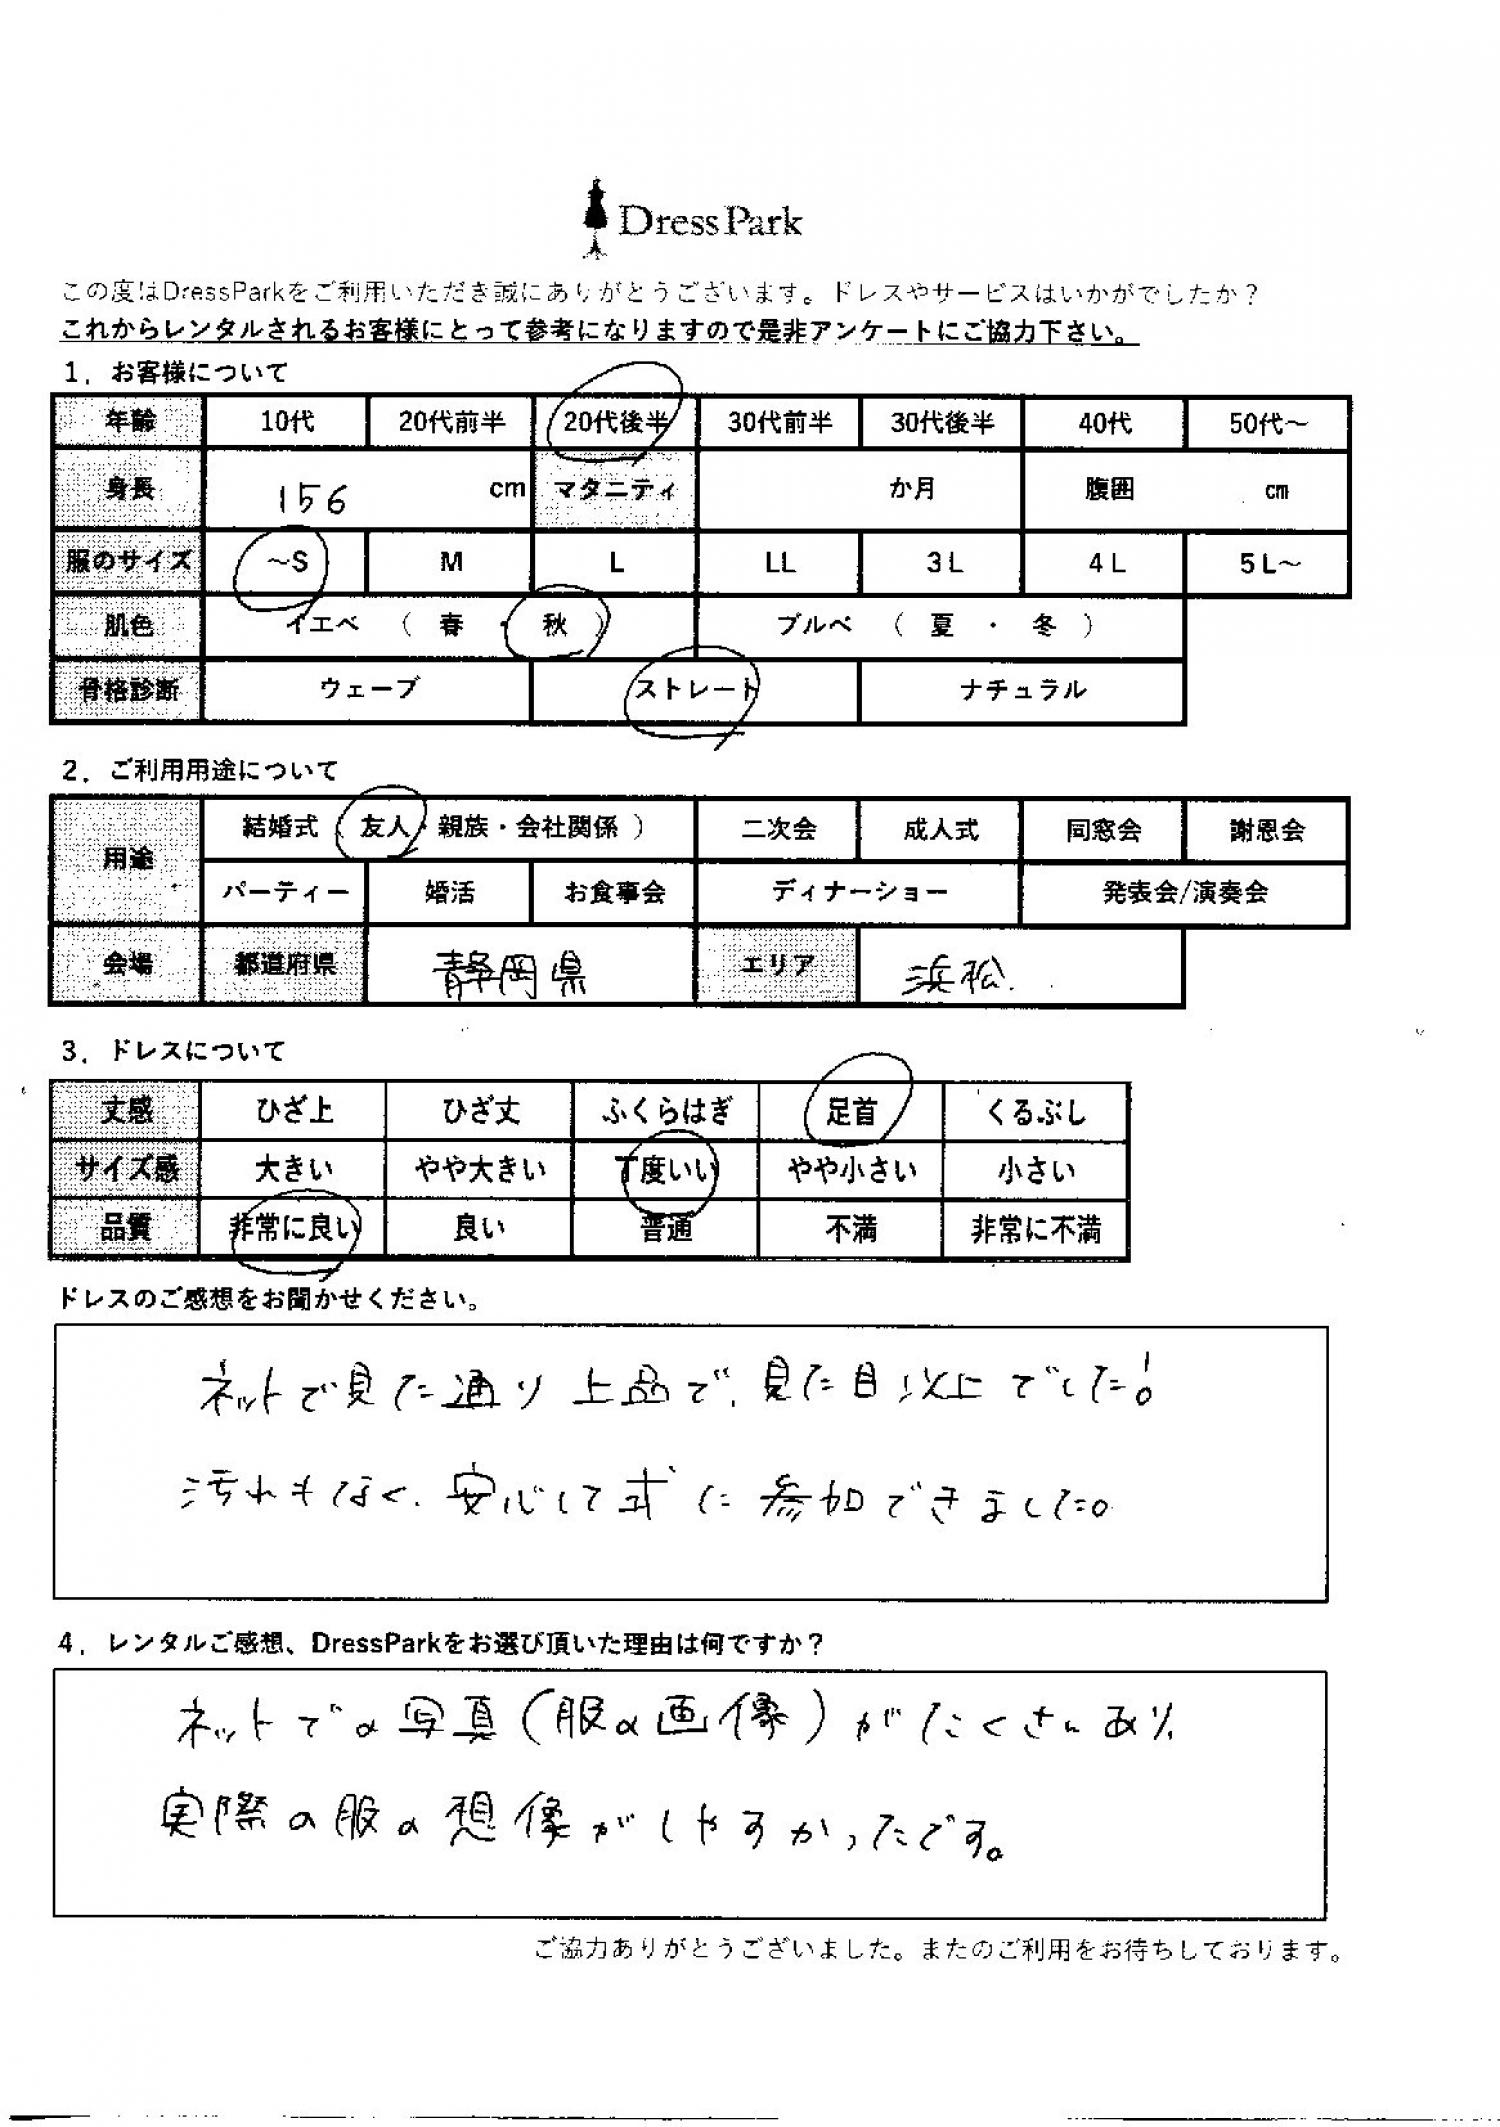 DressPark
この度はDressParkをご利用いただき誠にありがとうございます。ドレスやサービスはいかがでしたか？
これからレンタルされるお客様にとって参考になりますので是非アンケートにご協力下さい。
1．お客様について
年齢 10代 20代前半 20代後半 30代前半 30代後半 40代 50代～
身長 156 cm マタニティ か月 腹囲 cm
服のサイズ ～S M L LL 3L 4L 5L～
肌色 イエベ （ 春 ・ 秋 ） ブルベ （ 夏 ・ 冬 ）
骨格診断 ウェーブ ストレート ナチュラル
2．ご利用用途について
用途 結婚式（友人・親族・会社関係） 二次会 成人式 同窓会 謝恩会
パーティー 婚活 お食事会 ディナーショー 発表会/演奏会
会場 都道府県 静岡県 エリア 浜松.
3．ドレスについて
丈感 ひざ上 ひざ丈 ふくらはぎ 足首 くるぶし
サイズ感 大きい やや大きい 丁度いい やや小さい 小さい
品質 非常に良い 良い 普通 不満 非常に不満
ドレスのご感想をお聞かせください。
ネットで見た通り上品で、見た目以上でした！
汚れもなく、安心して式に参加できました。
4．レンタルご感想、DressParkをお選び頂いた理由は何ですか？
ネットでの写真（服の画像）がたくさんあり、
実際の服の想像がしやすかったです。
ご協力ありがとうございました。またのご利用をお待ちしております。